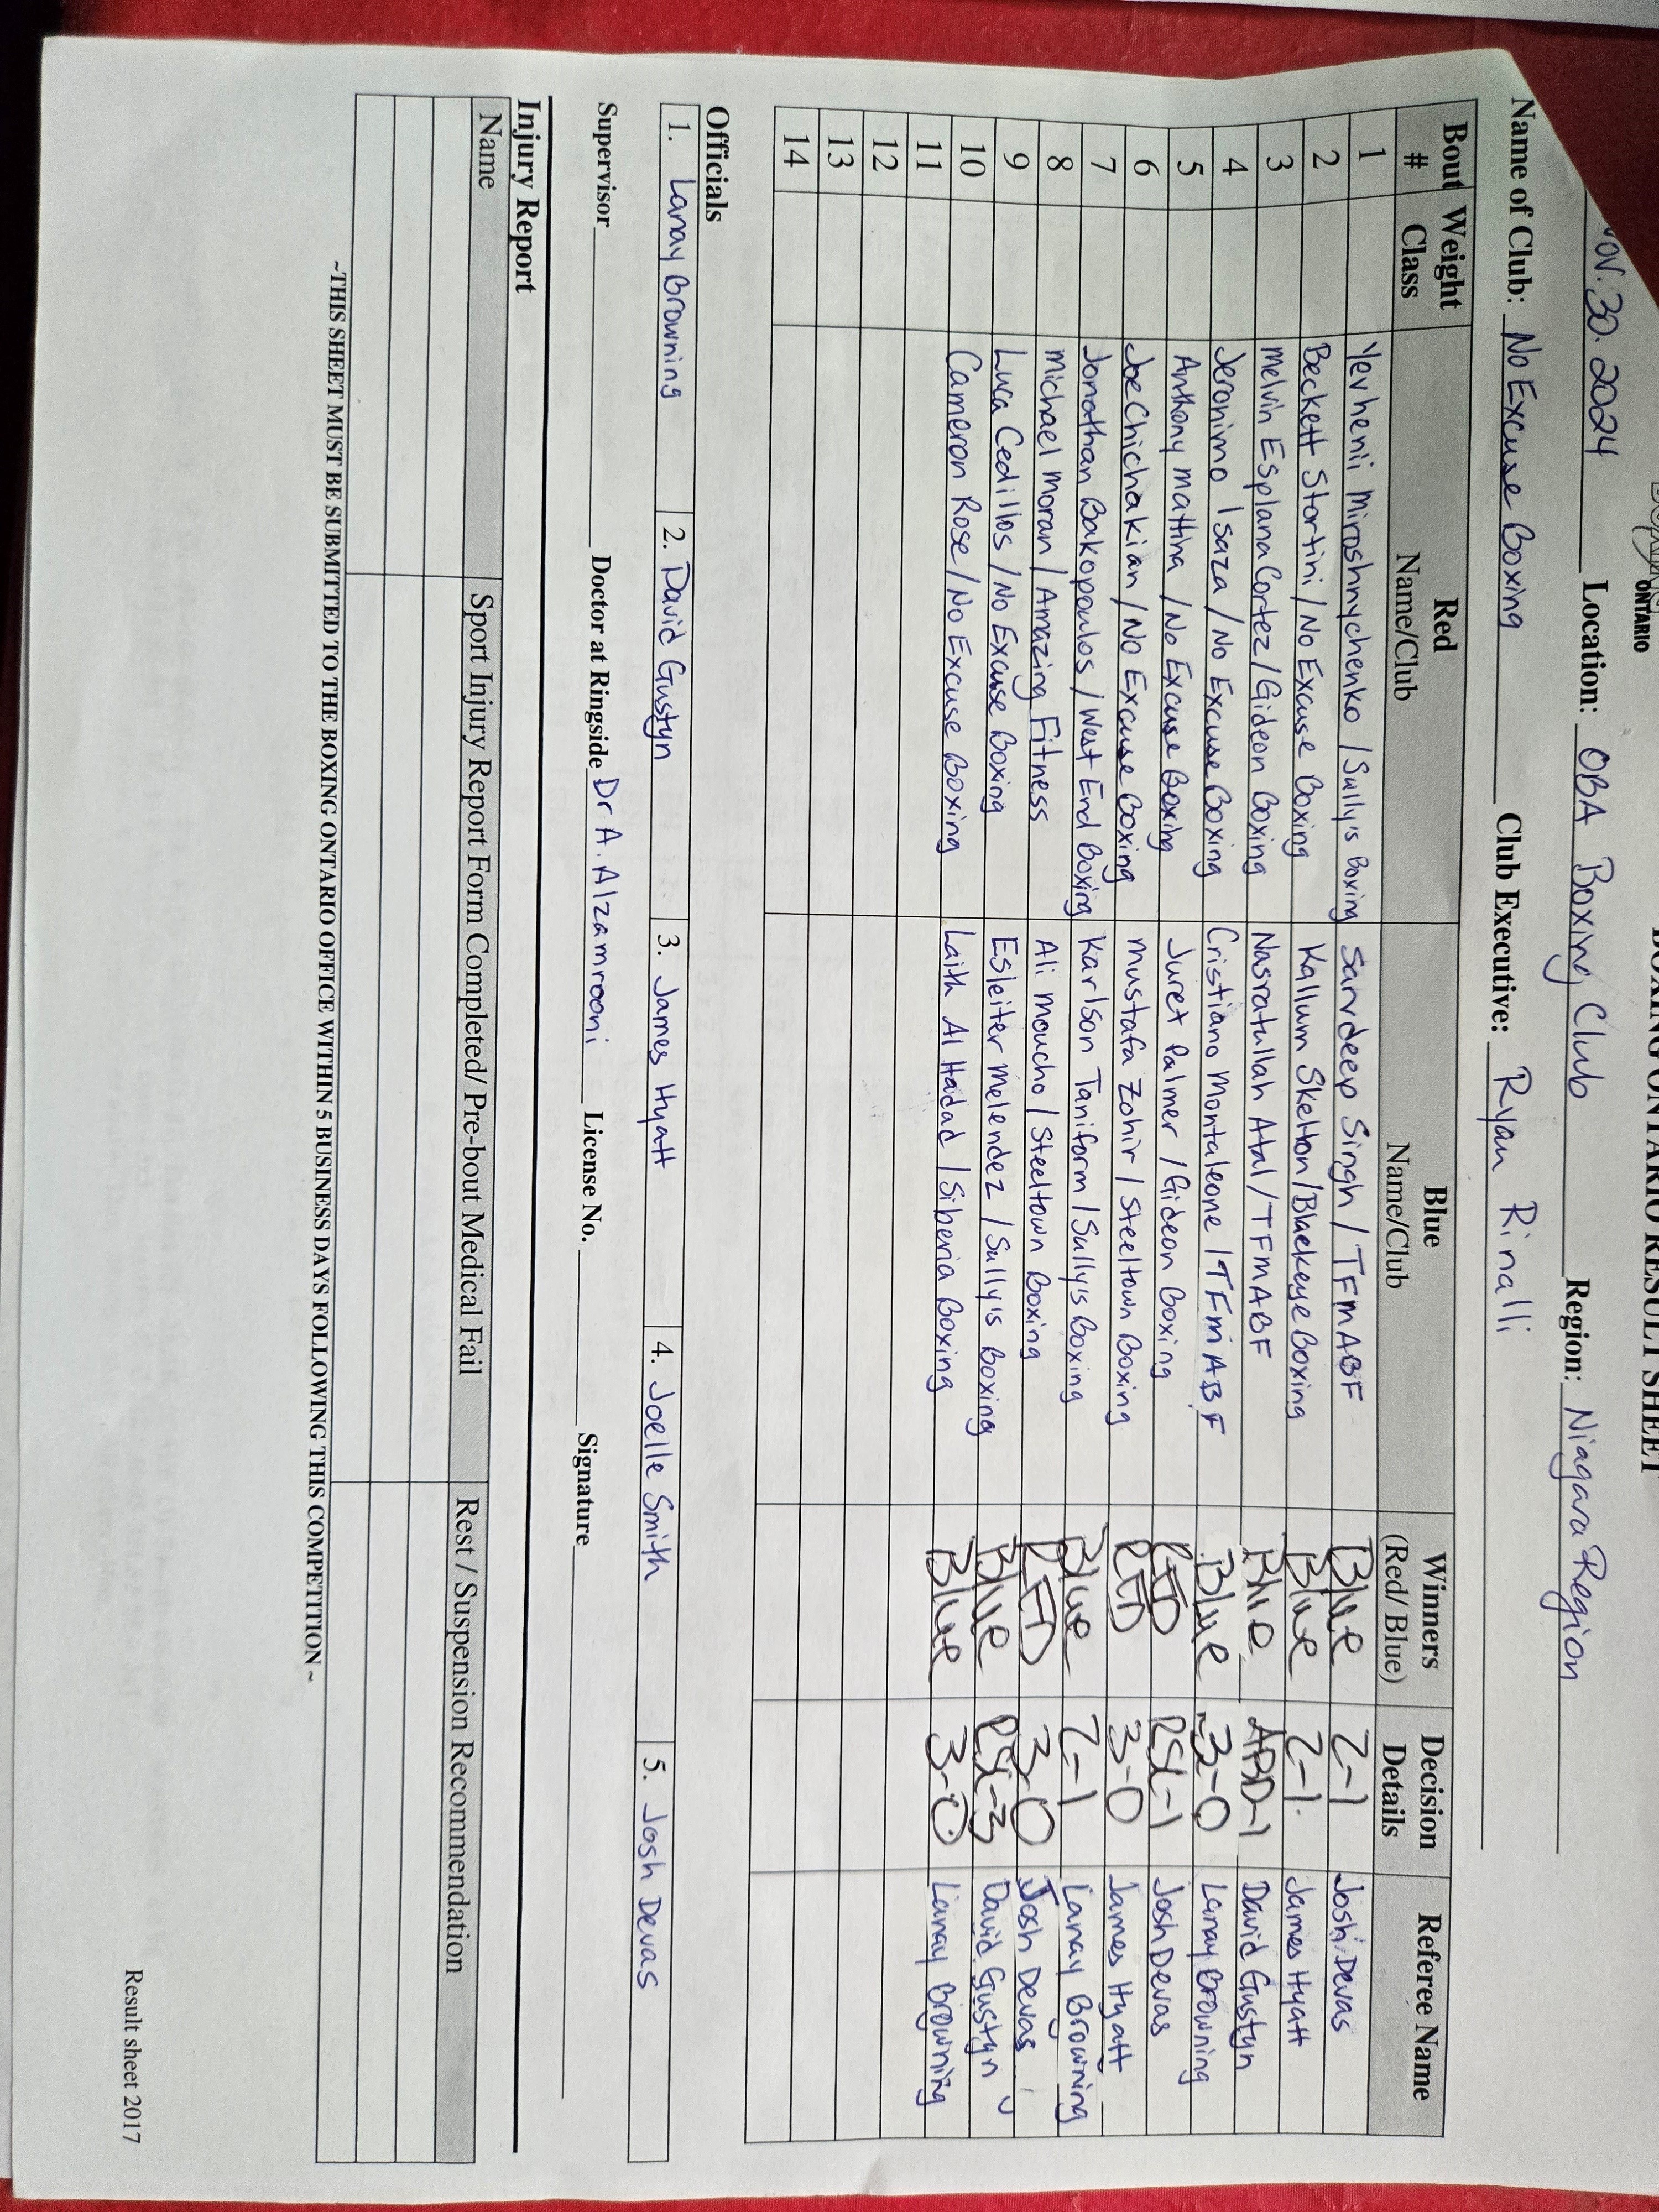 BOXING ONTARIO RESULT SHEET
ONTARIO
Nov. 30. 2024 Location: OBA Boxing Club Region: Niagara Region
Name of Club: No Excuse Boxing Club Executive: Ryan Rinalli
Bout # Weight Class Red Name/Club Blue Name/Club Winners (Red/ Blue) Decision Details Referee Name
1 Yevhenii Miroshnychenko / Sully's Boxing Sardeep Singh / TFMABF Blue 2-1 Josh Devas
2 Beckett Stortini / No Excuse Boxing Kallum Skelton / Blackeye Boxing Blue 2-1. James Hyatt
3 Melvin Esplana Cortez / Gideon Boxing Nasratullah Atal / TFMABF Blue ABD-1 David Gustyn
4 Jeronimo Isaza / No Excuse Boxing Cristiano Montaleone / TFMABF Blue 3-0 Lanay Browning
5 Anthony Mattina / No Excuse Boxing Juret Palmer / Gideon Boxing RED RSC-1 Josh Devas
6 Joe Chichakian / No Excuse Boxing Mustafa Zohir / Steeltown Boxing RED 3-0 James Hyatt
7 Jonathan Bakopoulos / West End Boxing Karlson Taniform / Sully's Boxing Blue 2-1 Lanay Browning
8 Michael Moran / Amazing Fitness Ali Moucho / Steeltown Boxing RED 3-0 Josh Devas
9 Luca Cedillos / No Excuse Boxing Esleiter Melendez / Sully's Boxing Blue RSC-3 David Gustyn
10 Cameron Rose / No Excuse Boxing Laith Al Hadad / Siberia Boxing Blue 3-0 Lanay Browning
11
12
13
14
Officials
1. Lanay Browning 2. David Gustyn 3. James Hyatt 4. Joelle Smith 5. Josh Devas
Supervisor Doctor at Ringside Dr A. Alzamrooni License No. Signature
Injury Report
Name Sport Injury Report Form Completed/ Pre-bout Medical Fail Rest / Suspension Recommendation
~THIS SHEET MUST BE SUBMITTED TO THE BOXING ONTARIO OFFICE WITHIN 5 BUSINESS DAYS FOLLOWING THIS COMPETITION ~
Result sheet 2017